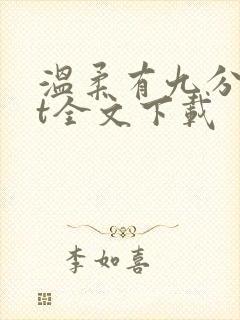 温柔有九分
t全文下载
李如喜